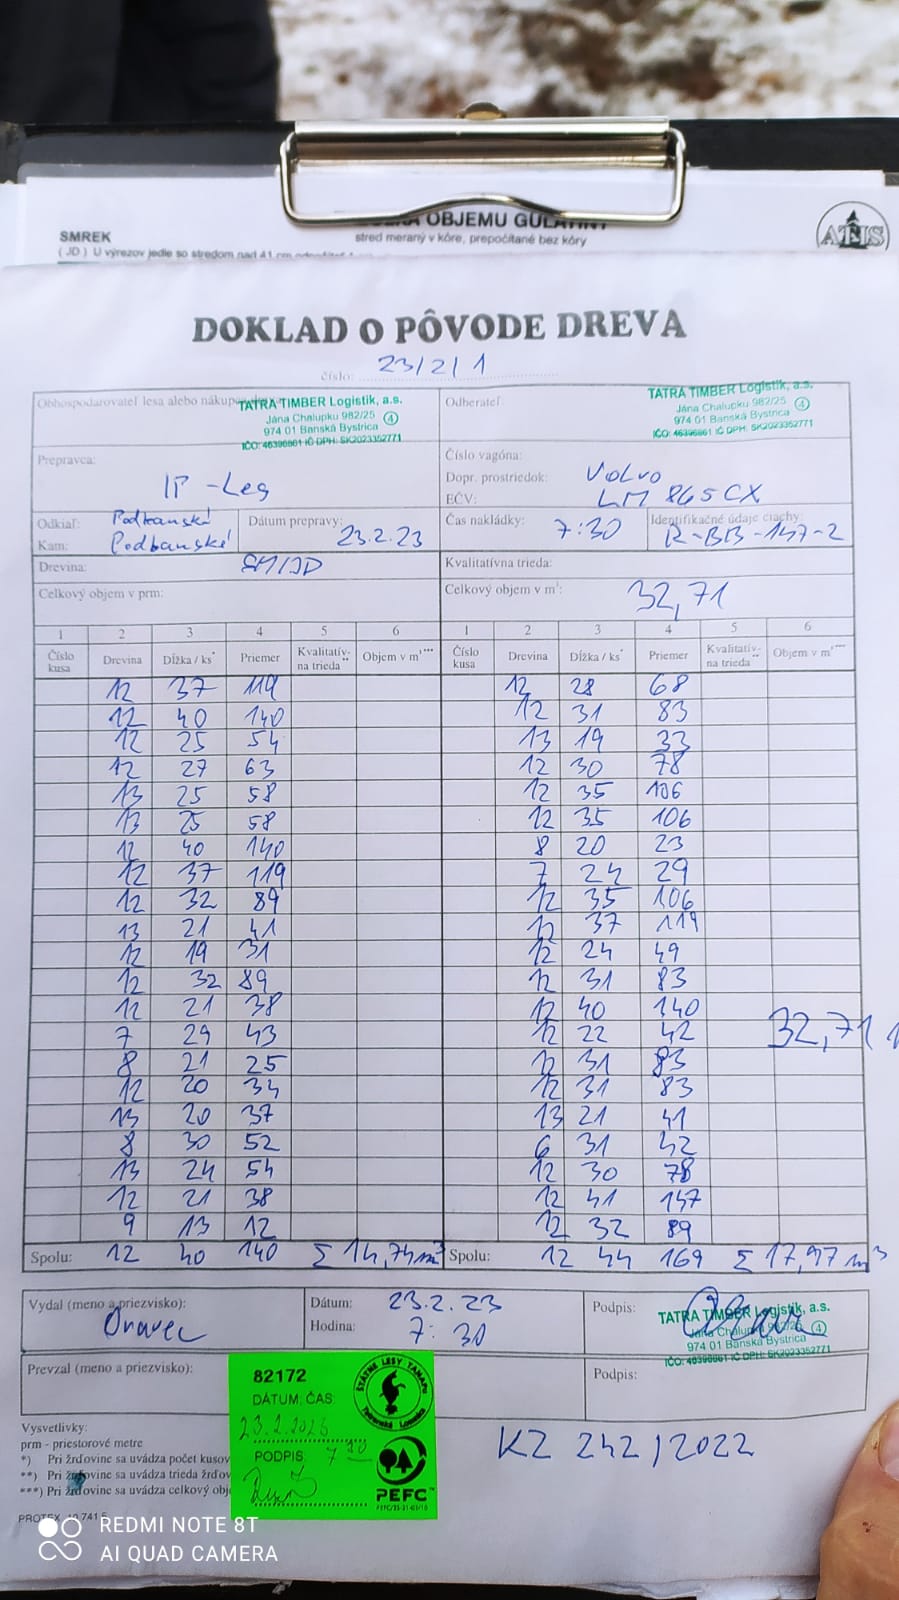 OBJEMU GUĽATINY
SMREK
stred meraný v kôre, prepočítané bez kôry
( JD ) U výrezov jedle so stredom nad 41 cm
DOKLAD O PÔVODE DREVA
číslo: 23/2/1
Obhospodarovateľ lesa alebo nákup
TATRA TIMBER Logistik, a.s.
Jána Chalupku 982/25
974 01 Banská Bystrica
4
IČO: 46396861 IČ DPH: SK2023352771
Odberateľ
TATRA TIMBER Logistik, a.s.
Jána Chalupku 982/25
974 01 Banská Bystrica
4
IČO: 46396861 IČ DPH: SK2023352771
Prepravca:
IP -Les
Číslo vagóna:
Dopr. prostriedok: Volvo
EČV: LM 865CX
Odkiaľ: Podbanské
Kam: Podbanské
Dátum prepravy: 23.2.23
Čas nakládky: 7:30
Identifikačné údaje ciachy:
R-BB-147-2
Drevina: SM/JD
Kvalitatívna trieda:
Celkový objem v prm:
Celkový objem v m³: 32,71
1 2 3 4 5 6 1 2 3 4 5 6
Číslo kusa Drevina Dĺžka / ks* Priemer Kvalitatív- na trieda** Objem v m³*** Číslo kusa Drevina Dĺžka / ks* Priemer Kvalitatív- na trieda** Objem v m³***
12 37 119 12 28 68
12 40 140 12 31 83
12 25 54 13 19 33
12 27 63 12 30 78
13 25 58 12 35 106
13 25 58 12 35 106
12 40 140 8 20 23
12 37 119 7 24 29
12 32 89 12 35 106
13 21 41 12 37 119
12 19 31 12 24 49
12 32 89 12 31 83
12 21 38 12 40 140
7 29 43 12 22 42 32,71
8 21 25 12 31 83
12 20 34 12 31 83
13 20 37 13 21 41
8 30 52 6 31 42
13 24 54 12 30 78
12 21 38 12 41 147
9 13 12 12 32 89
Spolu: 12 40 140 Σ 14,74m³ Spolu: 12 44 169 Σ 17,97 m³
Vydal (meno a priezvisko):
Oravec
Dátum: 23.2.23
Hodina: 7:30
Podpis:
TATRA TIMBER Logistik, a.s.
Jána Chalupku 982/25
4
974 01 Banská Bystrica
IČO: 46396861 IČ DPH: SK2023352771
Prevzal (meno a priezvisko):
Podpis:
82172
DÁTUM: ČAS:
23.2.2023
PODPIS: 7 30
ŠTÁTNE LESY TANAPu
Tatranská Lomnica
PEFC
KZ 242/2022
Vysvetlivky:
prm - priestorové metre
*) Pri žrďovine sa uvádza počet kusov
**) Pri žrďovine sa uvádza trieda žrďov
***) Pri žrďovine sa uvádza celkový obj
REDMI NOTE 8T
AI QUAD CAMERA